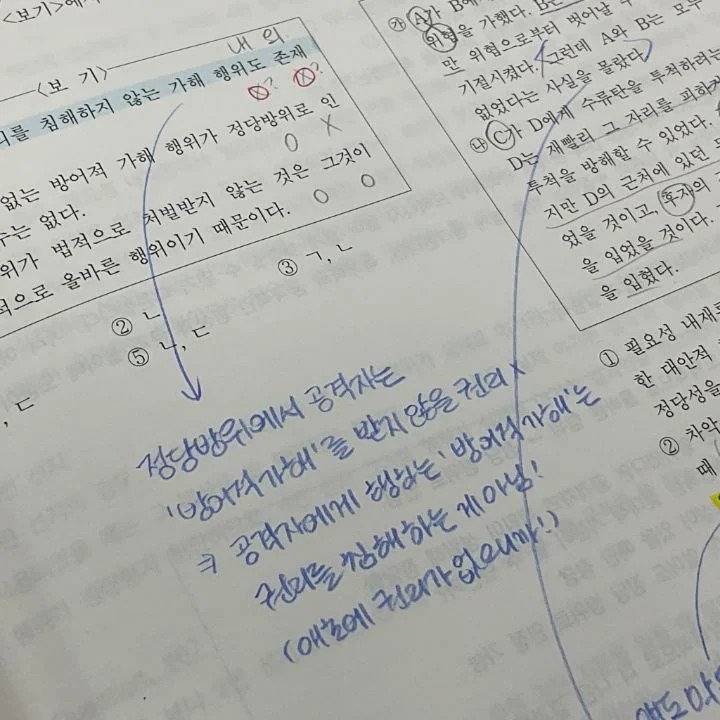 <보기>에
내 외
<보 기>
리를 침해하지 않는 가해 행위도 존재
없는 방어적 가해 행위가 정당방위로 인
수는 없다.
위가 법적으로 처벌받지 않는 것은 그것이
적으로 올바른 행위이기 때문이다.
③ ㄱ, ㄴ
② ㄴ
⑤ ㄴ, ㄷ
, ㄷ
정당방위에서 공격자는
'방어적가해'를 받지 않을 권리 x
⇒ 공격자에게 행하는 '방어적가해'는
권리를 침해하는 게 아님!
(애초에 권리가 없으니까!)
㉮ A가 B에
위협을 가했다. B는
만 위협으로부터 벗어날 수
기절시켰다. 그런데 A와 B는 모두
없었다는 사실을 몰랐다.
㉯ C가 D에게 수류탄을 투척하려는
D는 재빨리 그 자리를 피하
투척을 방해할 수 있었다.
지만 D의 근처에 있던
었을 것이고, 후자의
을 입었을 것이다.
을 입혔다.
① 필요성 내재
한 대안적
정당성을
② 차악
때